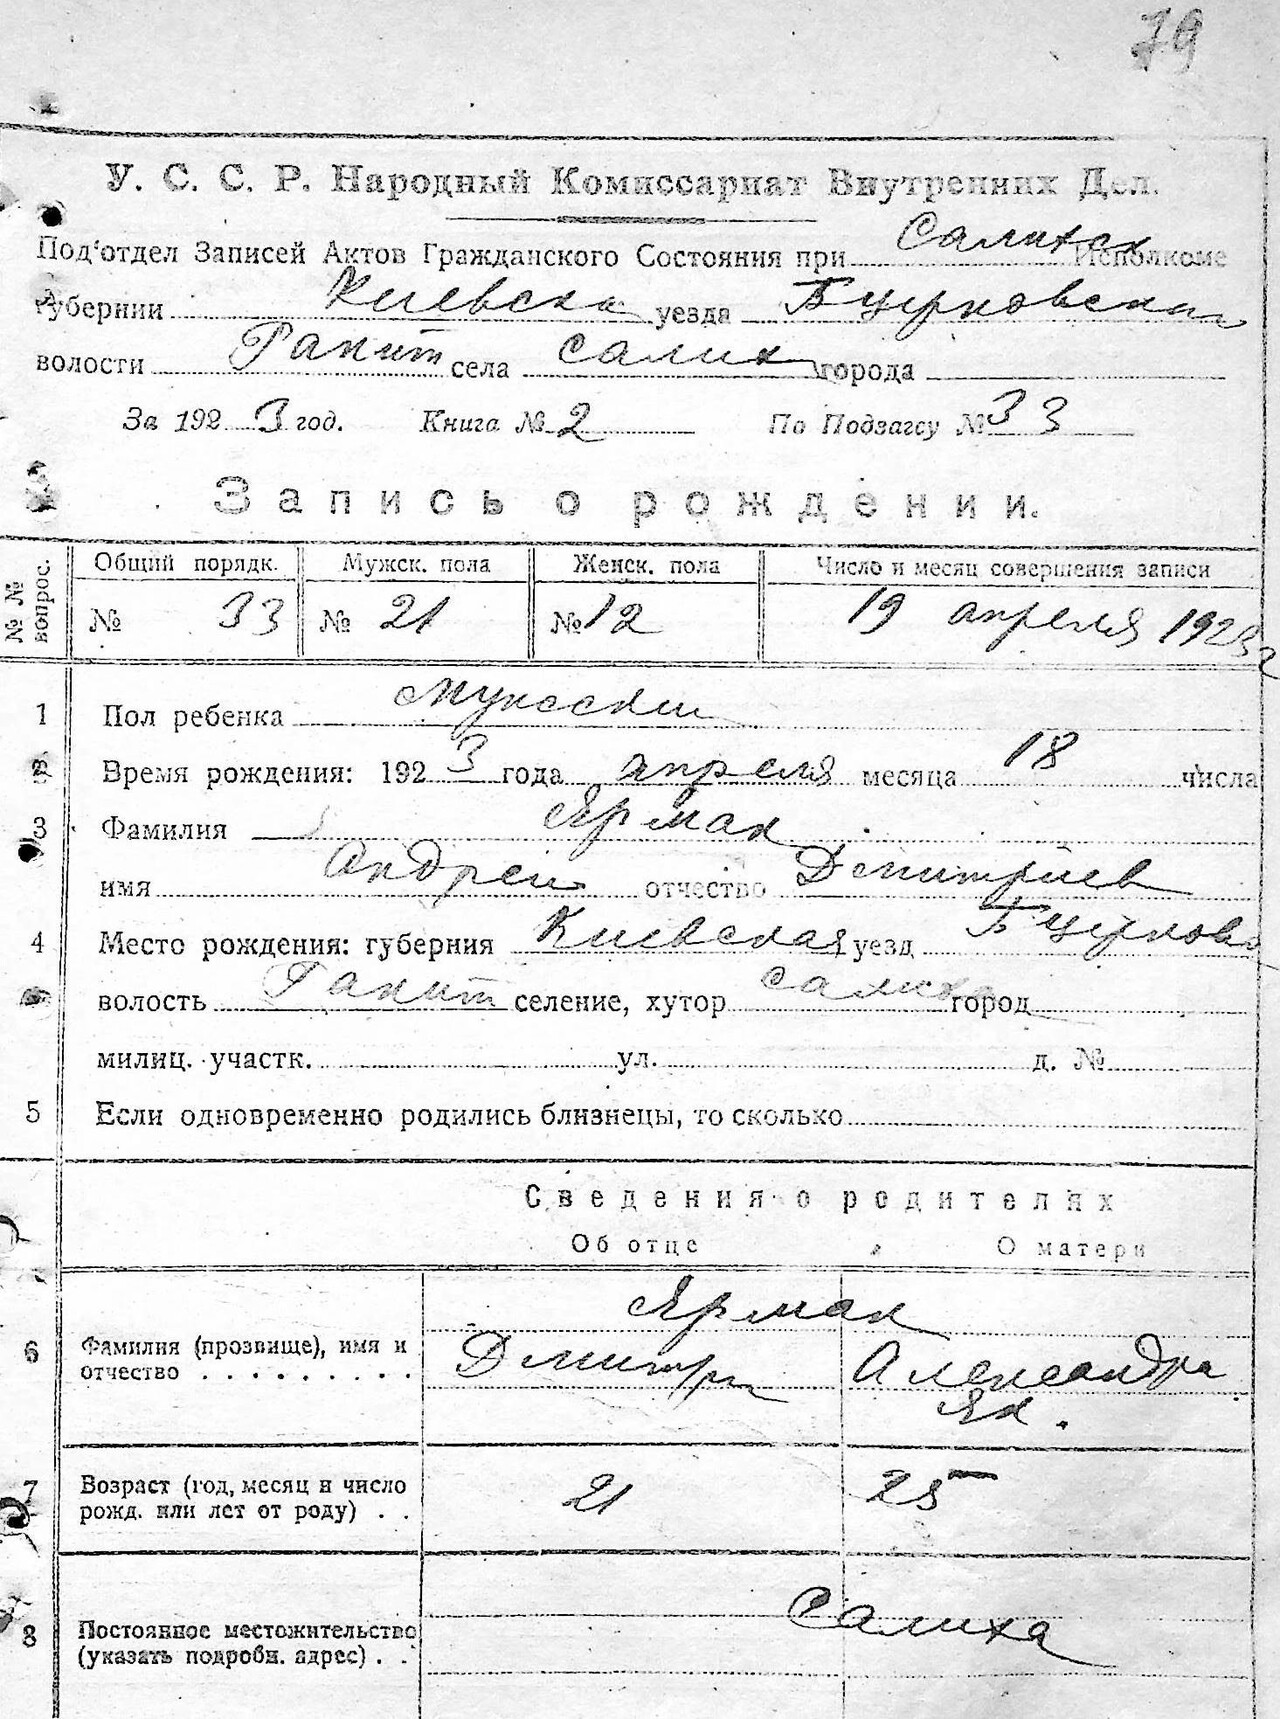 79
У. С. С. Р. Народный Комиссариат Внутренних Дел.
Под'отдел Записей Актов Гражданского Состояния при Салихск Исполкоме
Губернии Киевска уезда Бцерковска
волости Ракит села Салих города
За 1923 год. Книга № 2 По Подзагсу № 33
Запись о рождении.
№№ вопрос. Общий порядк. Мужск. пола Женск. пола Число и месяц совершения записи
№ 33 № 21 № 12 19 апреля 1923
1 Пол ребенка Мужский
2 Время рождения: 1923 года апреля месяца 18 числа
3 Фамилия Ярмак
имя Андрей отчество Дмитриев
4 Место рождения: губерния Киевская уезд Бцерковс
волость Ракит селение, хутор Салиха город
милиц. участк. ул. д. №
5 Если одновременно родились близнецы, то сколько
Сведения о родителях
Об отце О матери
Ярмак
6 Фамилия (прозвище), имя и отчество Дмитри Александра
Як.
7 Возраст (год, месяц и число рожд. или лет от роду) 21 25
8 Постоянное местожительство (указать подробн. адрес) Салиха